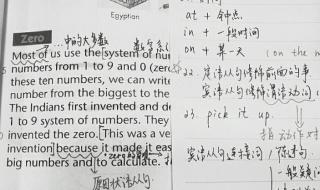 Egyptian
Zero
...中的大多数
数字系
Most of us use the system of nu
numbers from 1 to 9 and 0 (zero
these ten numbers, we can write
number from the biggest to the
The Indians first invented and de
1 to 9 system of numbers. They
invented the zero. This was a ve
invention because it made it eas
big numbers and to calculate.
原因状语从句
at + 钟点
in + 一段时间
on + 某一天
(on the m
22. 定语从句修饰前面的事
宾语从句修饰谓语动词
23. pick it up.
指动作对
宾语从句连接词
陈述句
一般疑